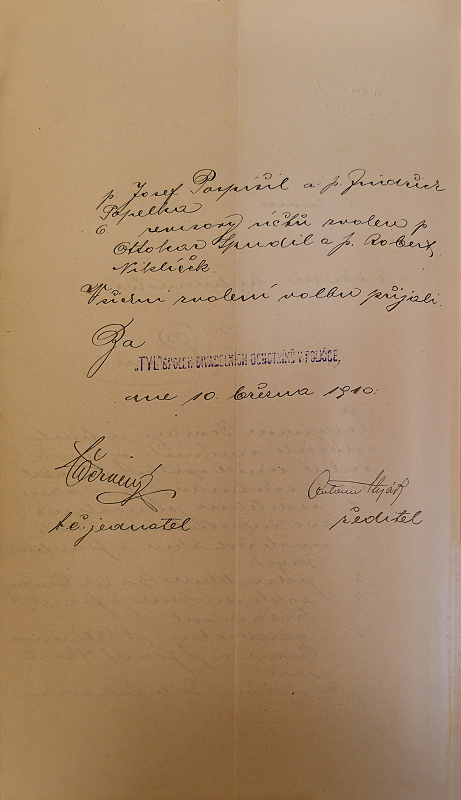 p. Josef Pospíšil a p. Jindřich
Popelka
6. revisory účtů zvolen p
Ottokar Spudil a p. Robert
Niklíček.
Všichni zvolení volbu přijali.
Za
„TYL“ SPOLEK DIVADELNÍCH OCHOTNÍKŮ V POLIČCE,
dne 10. března 1910.
Černý
t.č. jednatel
Antonín
ředitel